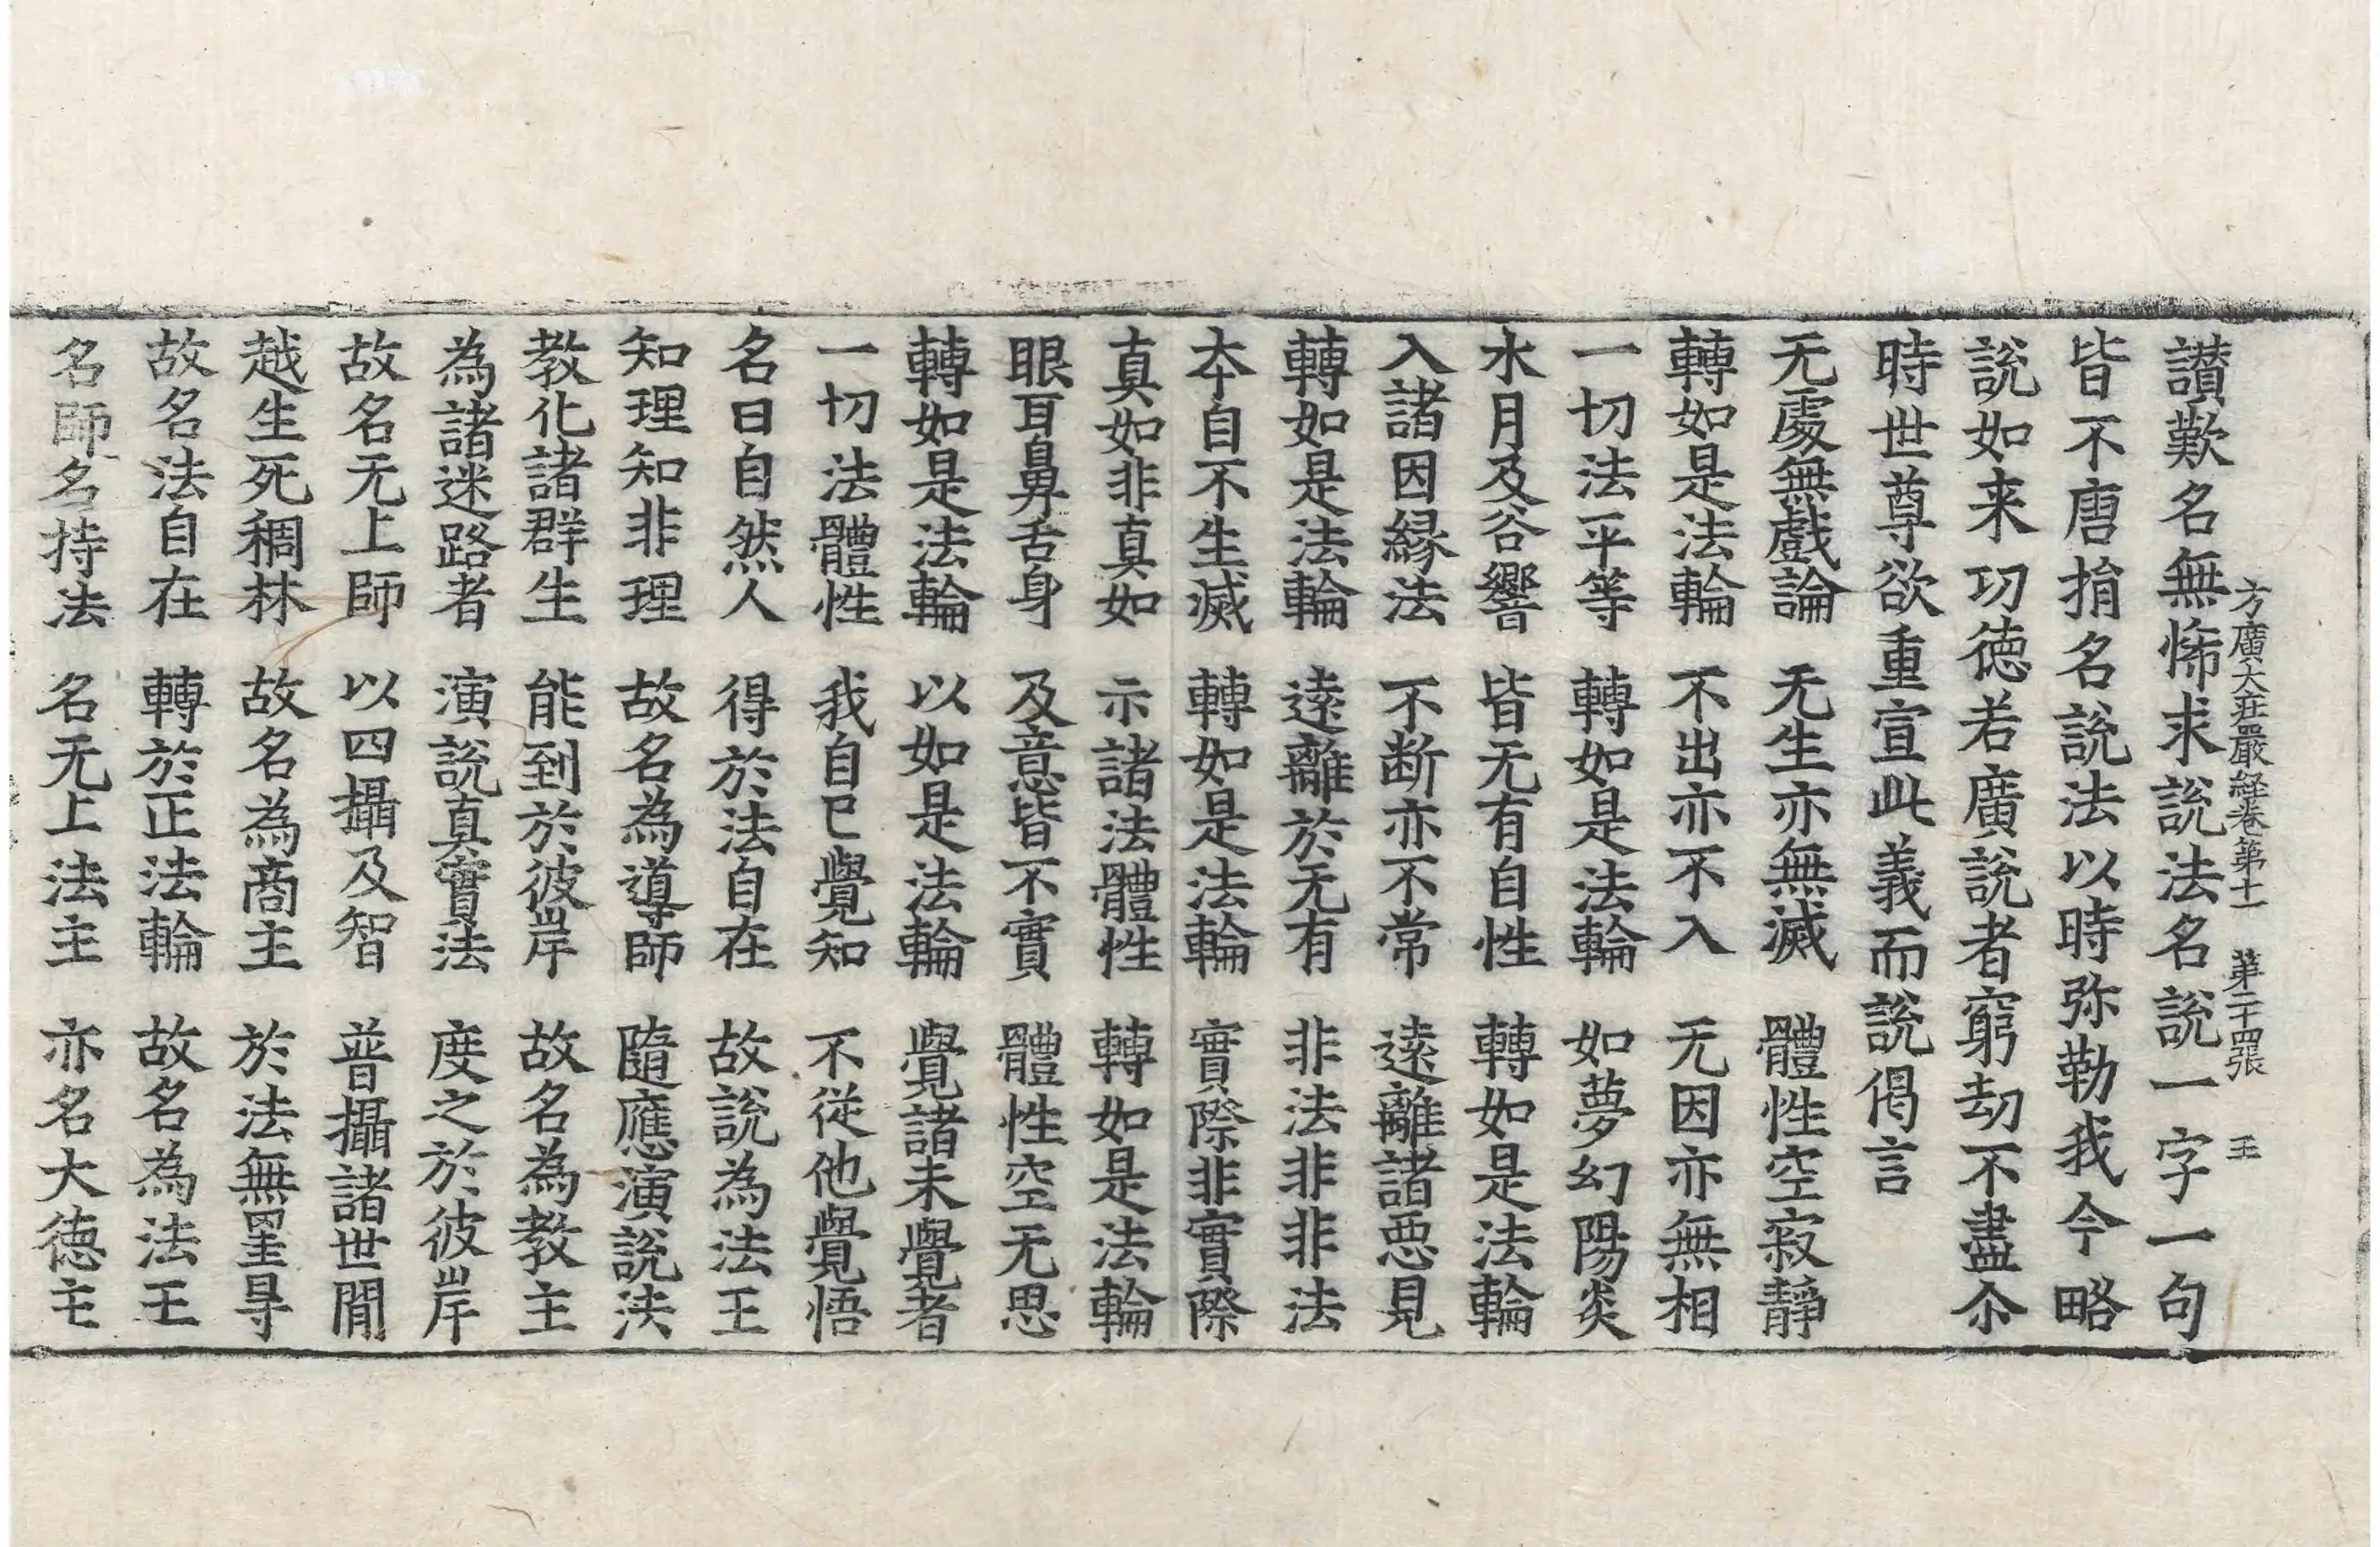 方廣大莊嚴経卷第十一 第二十四張 王
讃歎名無怖求說法名說一字一句
皆不唐捐名說法以時弥勒我今略
說如来功德若廣說者窮劫不盡尒
時世尊欲重宣此義而說偈言
无處無戲論 无生亦無滅 體性空寂靜
轉如是法輪 不出亦不入 无因亦無相
一切法平等 轉如是法輪 如夢幻陽炎
水月及谷響 皆无有自性 轉如是法輪
入諸因緣法 不断亦不常 遠離諸惡見
轉如是法輪 遠離於无有 非法非非法
夲自不生滅 轉如是法輪 實際非實際
真如非真如 示諸法體性 轉如是法輪
眼耳鼻舌身 及意皆不實 體性空无思
轉如是法輪 以如是法輪 覺諸未覺者
一切法體性 我自已覺知 不從他覺悟
名曰自然人 得於法自在 故說為法王
知理知非理 故名為導師 隨應演說法
教化諸群生 能到於彼岸 故名為教主
為諸迷路者 演說真實法 度之於彼岸
故名无上師 以四攝及智 普攝諸世間
越生死稠林 故名為商主 於法無罣㝵
故名法自在 轉於正法輪 故名為法王
名師名持法 名无上法主 亦名大德主